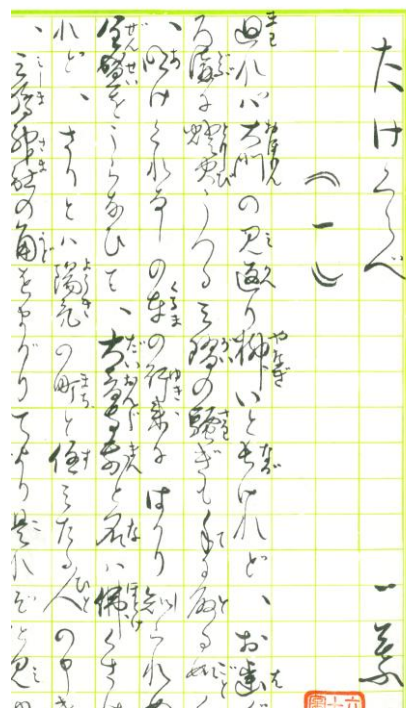 たけくらべ 一葉
（一）
廻れバ大門の見返り柳いと長けれど、お歯ぐ
ろ溝に燈火うつる三階の騒ぎも手に取る如く
、明けくれなしの車の行来にはかり知られぬ
全盛をうらなひて、大音寺前と名ハ佛くさけ
れど、さりとハ陽気の町と住みたる人の申き
、三嶋神社の角をまがりてより是れぞと見ゆ